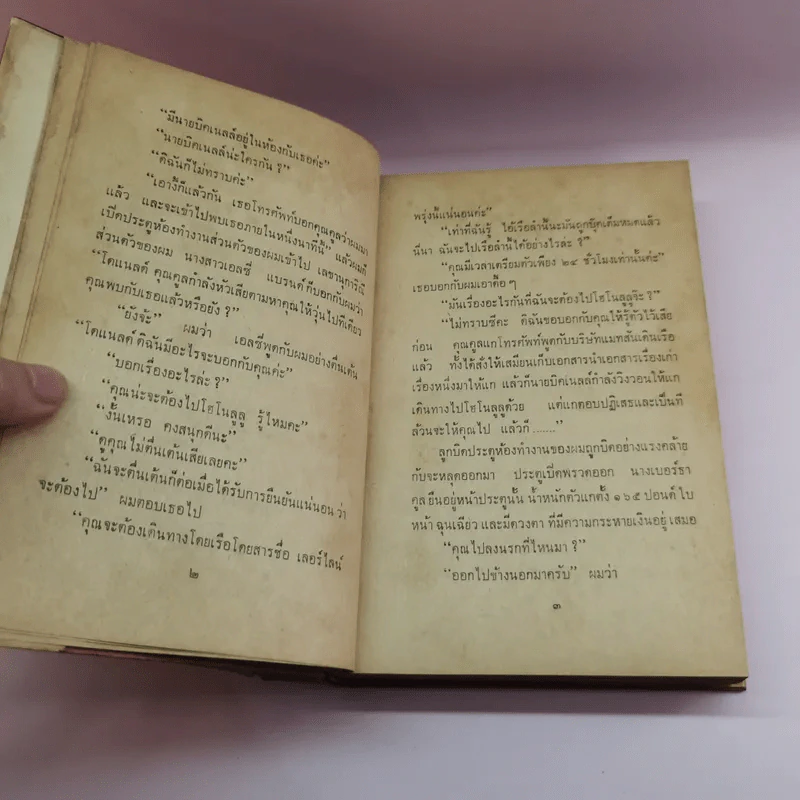 “มีนายบิคเนลล์อยู่ในห้องกับเธอค่ะ”
“นายบิคเนลล์น่ะใครกัน ?”
“ดิฉันก็ไม่ทราบค่ะ”
“เอางี้ก็แล้วกัน เธอโทรศัพท์บอกคุณคูลว่าผมมา
แล้ว และจะเข้าไปพบเธอภายในหนึ่งนาทีนี้” แล้วผมก็
เปิดประตูห้องทำงานส่วนตัวของผมเข้าไป เลขานุการิณี
ส่วนตัวของผม นางสาวเอลซี่ แบรนด์ก็บอกกับผมว่า
“โดแนลด์ คุณคูลกำลังหัวเสียตามหาคุณให้วุ่นไปทีเดียว
คุณพบกับเธอแล้วหรือยัง ?”
“ยังจ้ะ” ผมว่า เอลซี่พูดกับผมอย่างตื่นเต้น
“โดแนลด์ ดิฉันมีอะไรจะบอกกับคุณค่ะ”
“บอกเรื่องอะไรล่ะ ?”
“คุณน่ะจะต้องไปโฮโนลูลู รู้ไหมคะ”
“งั้นเหรอ คงสนุกดีนะ”
“ดูคุณไม่ตื่นเต้นเสียเลยคะ”
“ฉันจะตื่นเต้นก็ต่อเมื่อได้รับการยืนยันแน่นอน ว่า
จะต้องไป” ผมตอบเธอไป
“คุณจะต้องเดินทางโดยเรือโดยสารชื่อ เลอร์ไลน์
๒
พรุ่งนี้แน่นอนค่ะ”
“เท่าที่ฉันรู้ ไอ้เรือลำนี้นะมันถูกบุ๊คเต็มหมดแล้ว
นี่นา ฉันจะไปเรือลำนี้ได้อย่างไรล่ะ ?”
“คุณมีเวลาเตรียมตัวเพียง ๒๔ ชั่วโมงเท่านั้นค่ะ”
เธอบอกกับผมเอาดื้อ ๆ
“มันเรื่องอะไรกันที่ฉันจะต้องไปโฮโนลูลูจ๊ะ ?”
“ไม่ทราบซีคะ ดิฉันขอบอกกับคุณให้รู้ตัวไว้เสีย
ก่อน คุณคูลแกโทรศัพท์พูดกับบริษัทแมทสันเดินเรือ
แล้ว ทั้งได้สั่งให้เสมียนเก็บเอกสารนำเอกสารเรื่องเก่า
เรื่องหนึ่งมาให้แก แล้วก็นายบิคเนลล์กำลังวิงวอนให้แก
เดินทางไปโฮโนลูลูด้วย แต่แกตอบปฏิเสธและเป็นที
ล้วนจะให้คุณไป แล้วก็ .......”
ลูกบิดประตูห้องทำงานของผมถูกบิดอย่างแรงคล้าย
กับจะหลุดออกมา ประตูเปิดพรวดออก นางเบอร์ธา
คูล ยืนอยู่หน้าประตูนั้น น้ำหนักตัวแกตั้ง ๑๖๕ ปอนด์ ใบ
หน้า ฉุนเฉียว และมีดวงตา ที่มีความกระหายเงินอยู่ เสมอ
“คุณไปลงนรกที่ไหนมา ?”
“ออกไปข้างนอกมาครับ” ผมว่า
๓